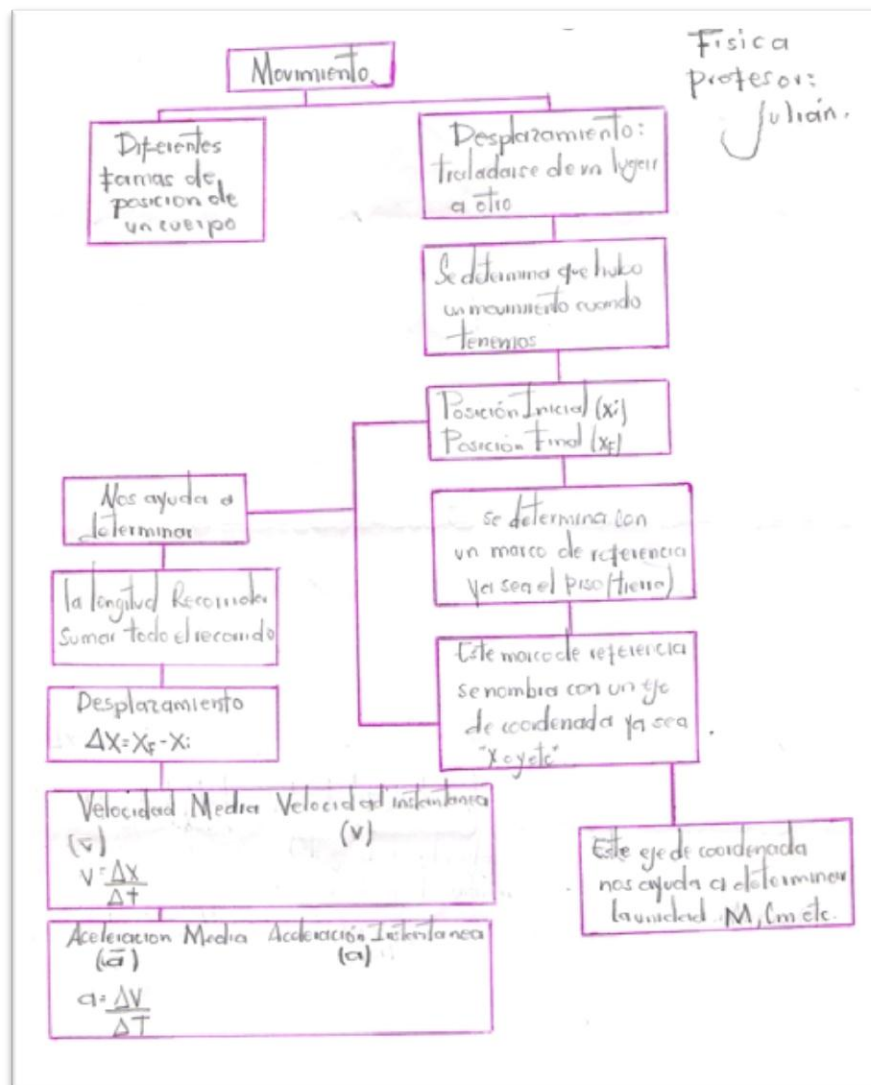 Física
profesor:
Julián.
Movimiento
Diferentes
formas de
posición de
un cuerpo
Desplazamiento:
traladarse de un lugar
a otro
Se determina que hubo
un movimiento cuando
tenemos
Posición Inicial (xi)
Posición Final (xF)
Nos ayuda a
determinar
se determina con
un marco de referencia
ya sea el piso (tierra)
la longitud Recorrida
Sumar todo el recorrido
Este marco de referencia
se nombra con un eje
de coordenada ya sea
"x o y etc"
Desplazamiento
ΔX = XF - Xi
Velocidad Media Velocidad instantanea
(v̄) (v)
V = ΔX
Δt
Este eje de coordenada
nos ayuda a determinar
la unidad M, Cm etc.
Aceleracion Media Aceleración Instantanea
(ā) (a)
a = ΔV
ΔT